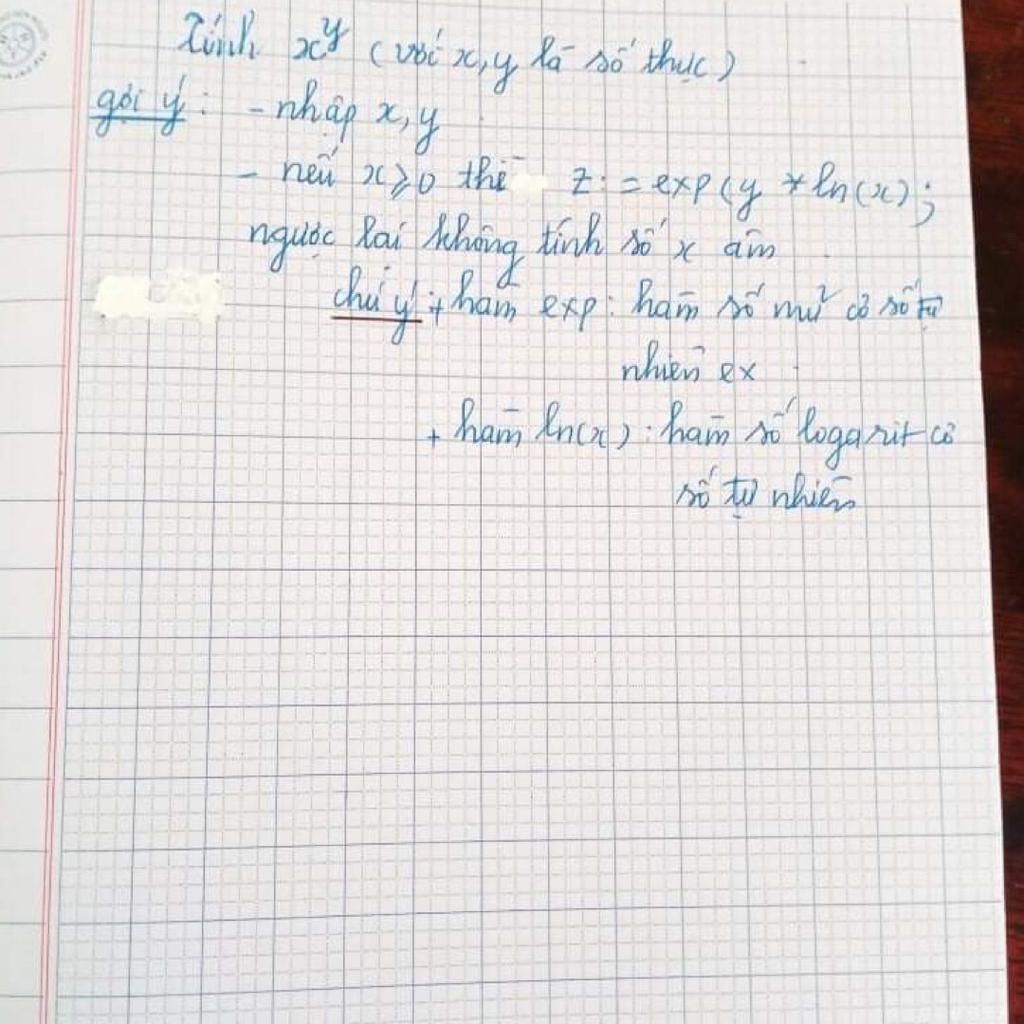 Tính x^y (với x, y là số thực)
gợi ý : - nhập x, y
- nếu x ≥ 0 thì z : = exp(y * ln(x);
ngược lại không tính số x âm
chú ý : + hàm exp : hàm số mũ cơ số tự
nhiên ex
+ hàm ln(x) : hàm số logarit cơ
số tự nhiên